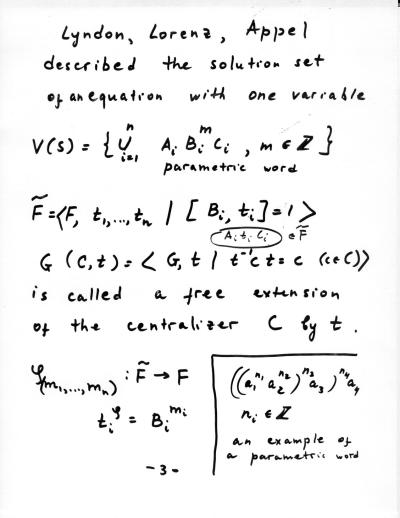 Lyndon, Lorenz, Appel
described the solution set
of an equation with one variable
V(S) = { ⋃ⁿᵢ₌₁ Aᵢ Bᵢᵐ Cᵢ , m ∈ ℤ }
parametric word
F̃ = ⟨F, t₁,...,tₙ | [Bᵢ, tᵢ] = 1⟩
Aᵢ tᵢ Cᵢ ∈ F̃
G (C,t) = ⟨ G, t | t⁻¹ct = c (c∈C)⟩
is called a free extension
of the centralizer C by t.
φ(m₁,...,mₙ) : F̃ → F
tᵢ^φ = Bᵢ^mᵢ
(((a₁^n₁ a₂)^n₂ a₃)^n₃)^n₄ a₄
nᵢ ∈ ℤ
an example of
a parametric word
-3-